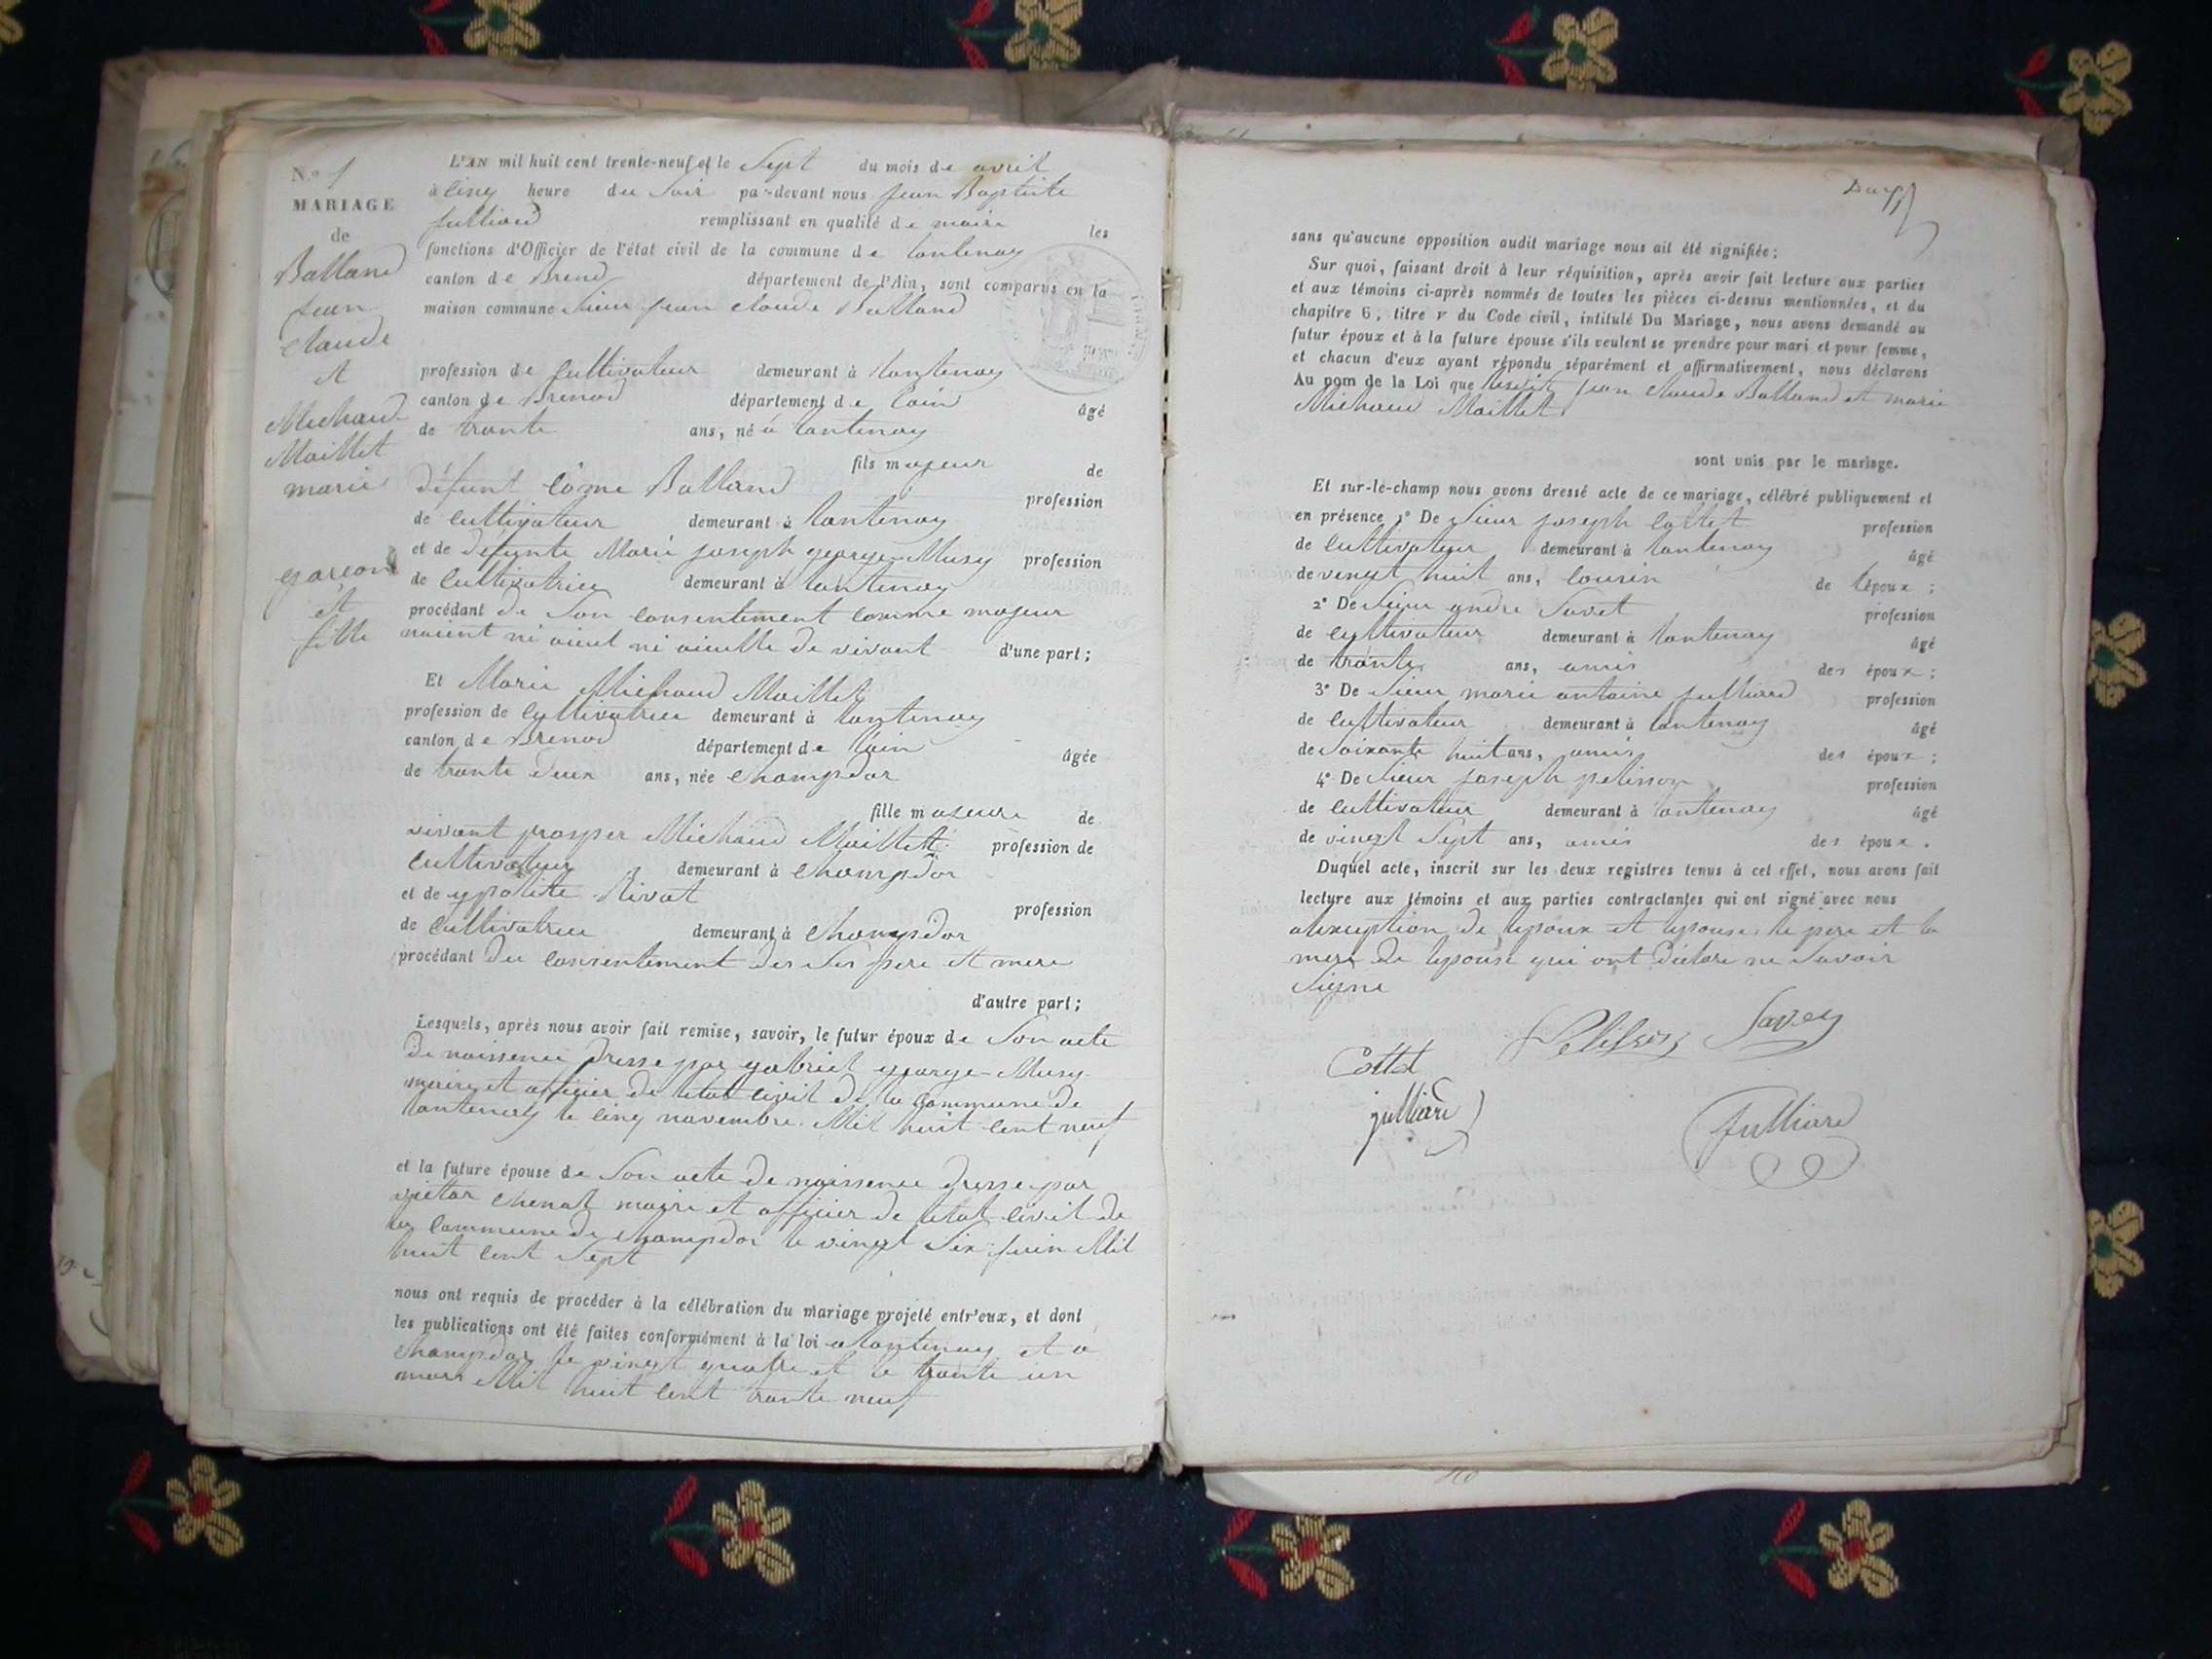 N.o 1
MARIAGE
de
Balland
jean
claude
et
Michaud
Maillet
marie
garcon
et
fille
L'AN mil huit cent trente-neuf et le Sept du mois de avril
à cinq heure du Soir par-devant nous jean Baptiste
julliard remplissant en qualité de maire les
fonctions d'Officier de l'état civil de la commune de lantenay
canton de Brend département de l'Ain, sont comparus en la
maison commune Sieur jean claude Balland
profession de cultivateur demeurant à lantenay
canton de Brenod département de lain âgé
de trante ans, né à lantenay
fils majeur de
défunt Côme Balland profession
de cultivateur demeurant à lantenay
et de défunte Marie joseph george-Musy profession
de cultivatrice demeurant à lantenay
procédant de Son consentement comme majeur
naient ni aieul ni aieulle de vivant d'une part;
Et Marie Michaud Maillet
profession de cultivatrice demeurant à lantenay
canton de Brenod département de lain âgée
de trante deux ans, née champdor
fille majeure de
vivant prosper Michaud Maillet profession de
cultivateur demeurant à champdor
et de ypolite Rivat profession
de cultivatrice demeurant à champdor
procédant du consentement des Ses pere et mere
d'autre part;
Lesquels, après nous avoir fait remise, savoir, le futur époux de Son acte
de naissence dresse par gabriel george-Musy
maire et officier de letat civil de la commune de
lantenay le cinq novembre Mil huit cent neuf
et la future épouse de Son acte de naissence dresse par
victor chenat maire et officier de letat civil de
la commune de champdor le vingt Six juin Mil
huit cent Sept
nous ont requis de procéder à la célébration du mariage projeté entr'eux, et dont
les publications ont été faites conformément à la loi a lantenay et a
champdor le vingt quatre et le trante un
mars Mil huit cent trante neuf
sans qu'aucune opposition audit mariage nous ait été signifiée;
Sur quoi, faisant droit à leur réquisition, après avoir fait lecture aux parties
et aux témoins ci-après nommés de toutes les pièces ci-dessus mentionnées, et du
chapitre 6, titre v du Code civil, intitulé Du Mariage, nous avons demandé au
futur époux et à la future épouse s'ils veulent se prendre pour mari et pour femme,
et chacun d'eux ayant répondu séparément et affirmativement, nous déclarons
Au nom de la Loi que lesdits jean claude Balland et marie
Michaud Maillet
sont unis par le mariage.
Et sur-le-champ nous avons dressé acte de ce mariage, célébré publiquement et
en présence 1° De Sieur joseph Cottet profession
de cultivateur demeurant à lantenay âgé
de vingt huit ans, cousin de lépoux;
2° De Sieur andre Savet profession
de cultivateur demeurant à lantenay âgé
de trante ans, amis des époux;
3° De Sieur marie antoine julliard profession
de cultivateur demeurant à lantenay âgé
de Soixante huit ans, amis des époux;
4° De Sieur joseph pelisson profession
de cultivateur demeurant à lantenay âgé
de vingt Sept ans, amis des époux.
Duquel acte, inscrit sur les deux registres tenus à cet effet, nous avons fait
lecture aux témoins et aux parties contractantes qui ont signé avec nous
alexception de lepoux et lepouse le pere et la
mere de lepouse qui ont diclare ne Savoir
Signe
Pelisson Savey
Cottet
julliard
julliard